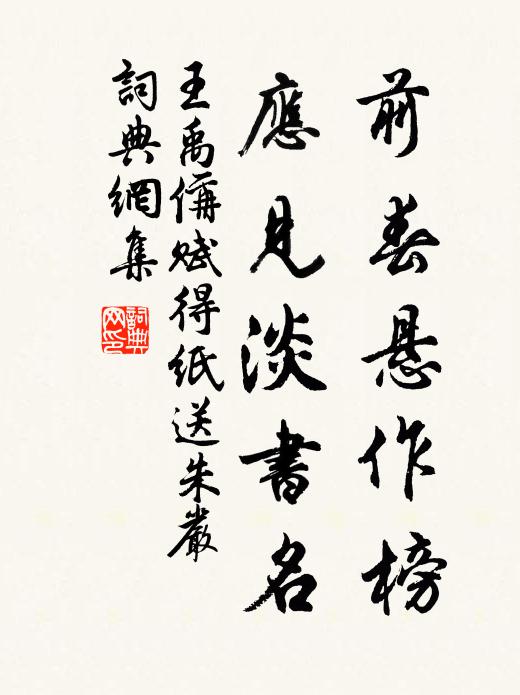 前春悬作榜
應見淡書名
王禹偁赋得紙送朱嚴
詞典網集
詞典网印